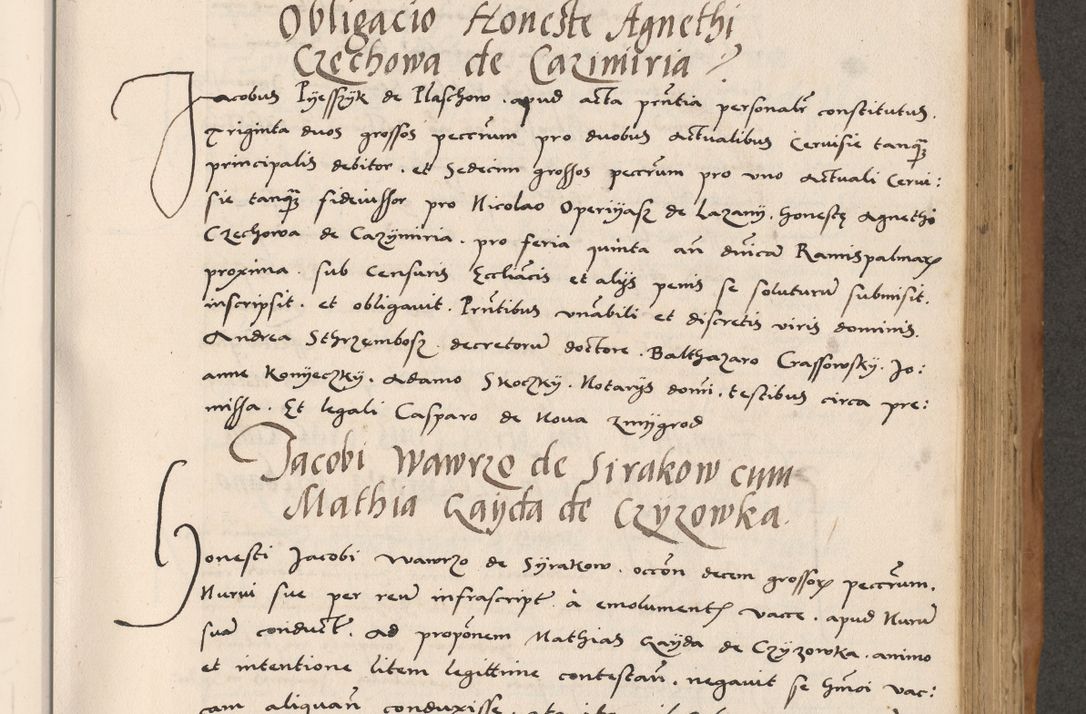 Obligacio Honeste Agnethi
Czechowa de Cazimiria
Jacobus Pyesszyk de Plaschow . apud acta pñtia personalr constitutus .
Triginta duos grossos peccrum pro duobus Actualibus Cervisie tanq̃
principalis debitor . et Sedecim grossos peccrum pro uno Actuali Cervi:
sie tanq̃ fideiussor pro Nicolao Operiyasz de Lazany . honestę Agnethi
Czechowa de Cazymiria . pro feria quinta añ dñicã Ramispalmarꝝ
proxima . sub Censuris Eccliãcis et alijs penis se soluturũ submisit .
inscripsit . et obligavit . Prñtibus vñabili et discretis viris dominis
Andrea Sthrzembosz . decretorũ doctore . Balthazaro Crassowsky . Jo:
anne Konyeczky . Adamo Skoczky . Notarijs domi . testibus circa pre:
missa . Et legali Casparo de Nova zmygrod
Jacobi Wawrzo de Sirakow cum
Mathia Gayda de Czyzowka .
Honesti Jacobi Wawrzo de Syrakow . occõn decem grossorꝝ peccrum .
Nurui sue per reũ infrascript . à emolument vacce . apud Nurũ
suã conduct . Ad propõnem Mathias Gayda de Czyzowka . animo
et intentione litem legittime contestañ . negavit se hm̃oi vac:
cam aliquañ conduxisse